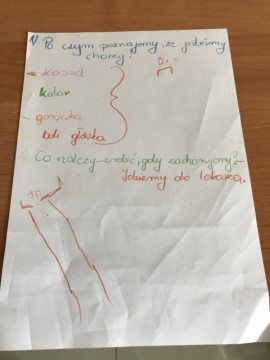 1) Po czym poznajemy, że jesteśmy
chorzy?
- kaszel
katar
- gorączka
boli główka
Co należy zrobić, gdy zachorujemy? -
Idziemy do lekarza.